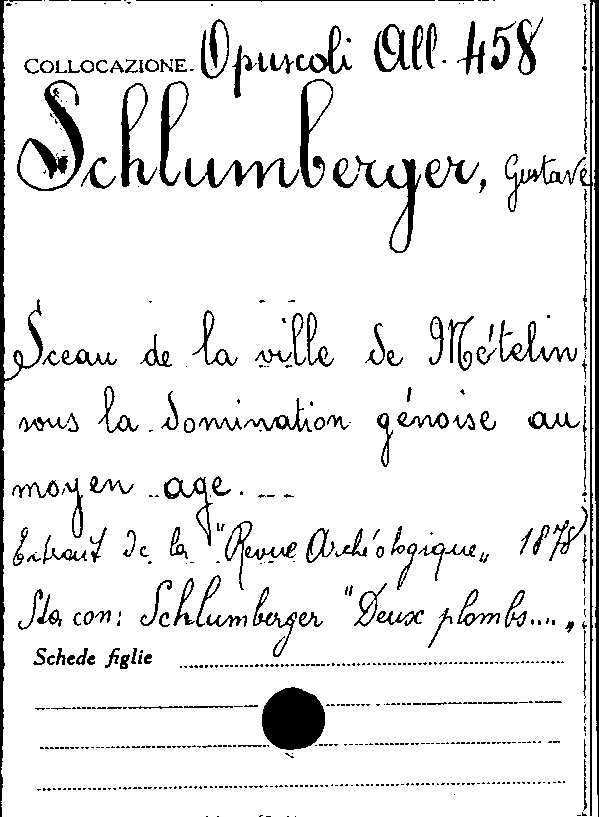 COLLOCAZIONE. Opuscoli All. 458
Schlumberger, Gustave
Sceau de la ville de Métélin
sous la domination génoise au
moyen age.
Extrait de la "Revue Archéologique„ 1878
Sta con: Schlumberger "Deux plombs....„
Schede figlie